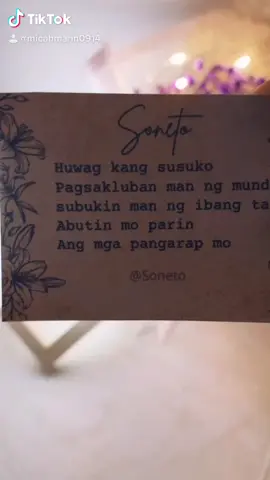 TikTok
Soneto
Huwag kang susuko
Pagsakluban man ng mund
subukin man ng ibang ta
Abutin mo parin
Ang mga pangarap mo
@Soneto